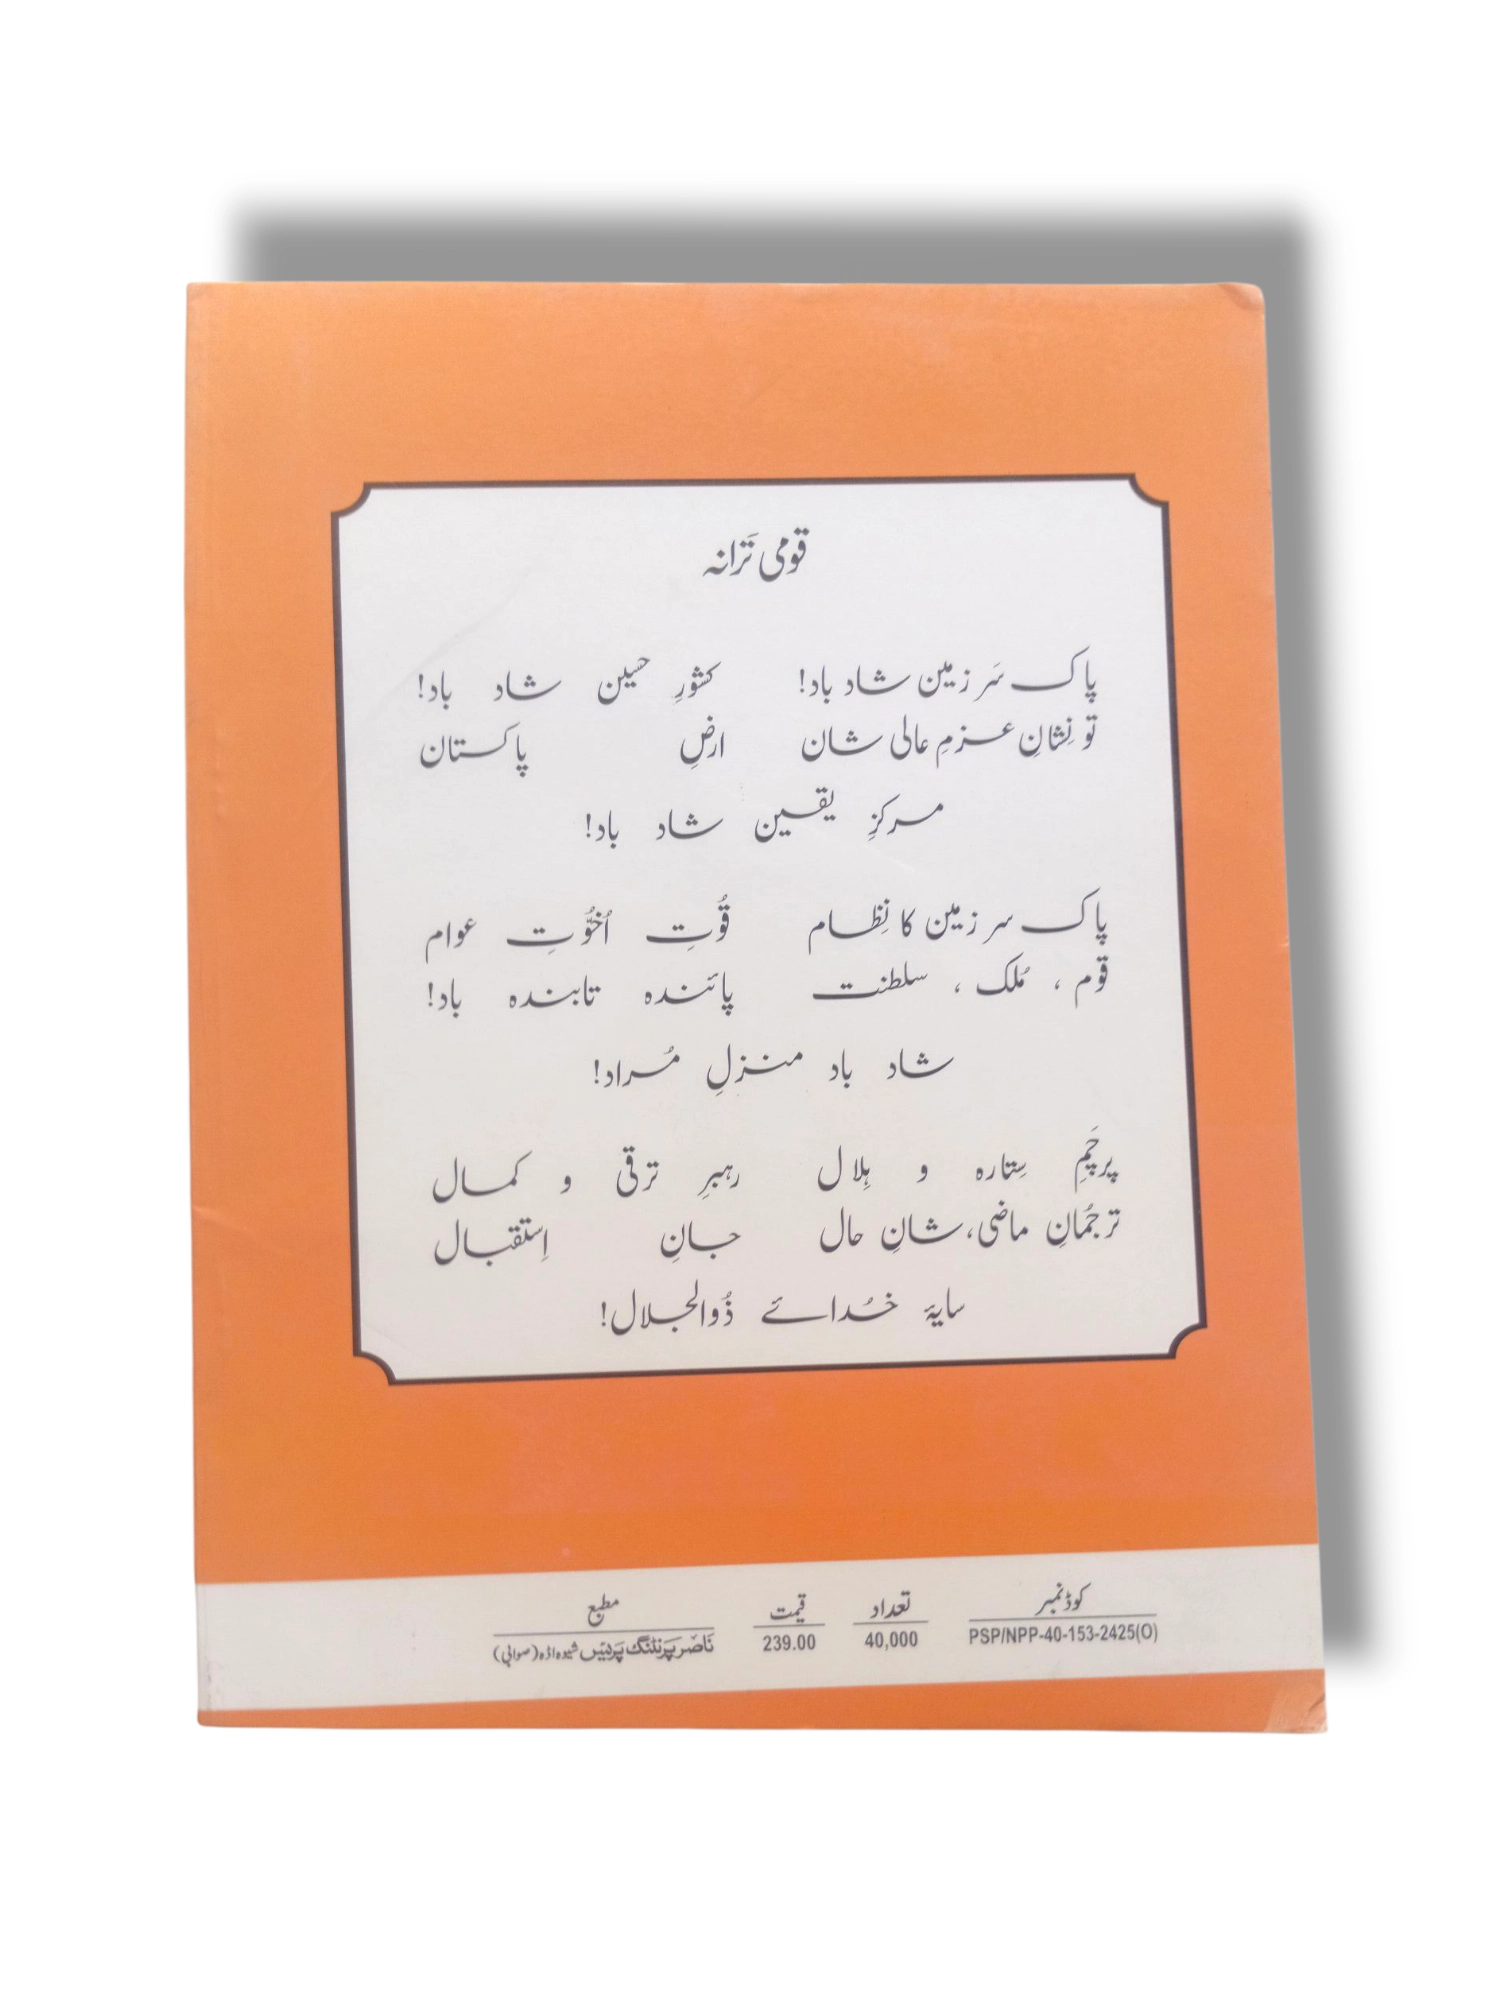 قومی تَرانہ
پاک سَر زمین شاد باد! کشورِ حسین شاد باد!
تو نِشانِ عزمِ عالی شان ارضِ پاکستان
مرکزِ یقین شاد باد!
پاک سر زمین کا نِظام قُوتِ اُخُوّتِ عوام
قوم ، مُلک ، سلطنت پائندہ تابندہ باد!
شاد باد منزلِ مُراد!
پرچَمِ سِتارہ و ہِلال رہبرِ ترقی و کمال
ترجُمانِ ماضی، شانِ حال جانِ اِستقبال
سایۂ خُدائے ذُوالجلال!
کوڈنمبر تعداد قیمت مطبع
PSP/NPP-40-153-2425(O) 40,000 239.00 ناصر پرنٹنگ پریس شیوہ اڈہ (صوابی)